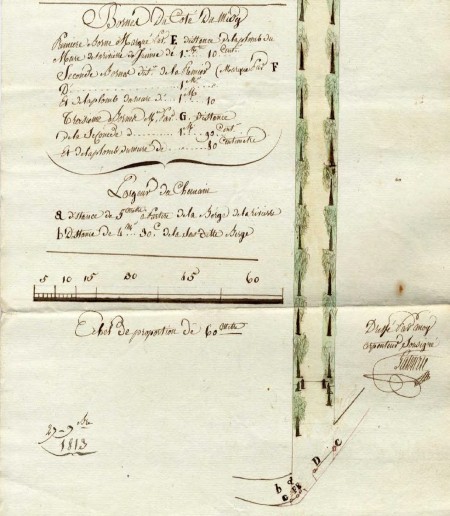 Bornes Du Coté Du Midy
Première Borne Marqué Par E distance de laplomb du
Mure de 1.M 10 Cent.
Seconde Borne dist. de la Premier (Marqué Par F
D. 1.M
Et de laplomb du mure d' 1.M 10
Troisieme Borne M. Par G. Distance
de la Seconde d 1.M 90 Cent.
Et de laplomb du mure de 10 Centimetre
Largeur du Chemain
a distance de 5 metre de la Berge de la
b Distance de 4.M 30.C de la Susditte Berge
5 10 15 30 45 60
Echel De proportion de 60 metre
Dressé Par Nous
arpenteur Soussigné
27 - 7.bre
1813
b d
D C